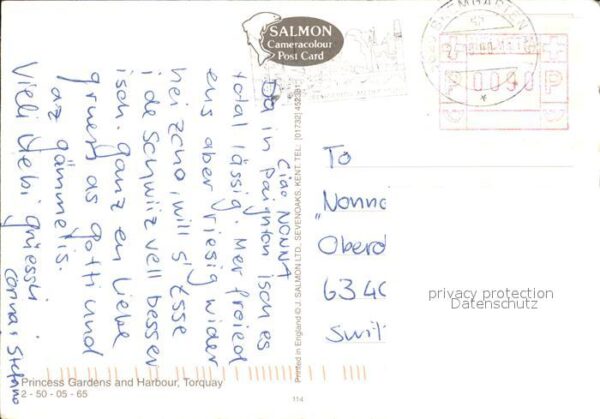 SALMON
Cameracolour
Post Card
Ciao NONNA
Da in paignton isch es
total lässig. Mer froied
eus aber riesig wider
hei zcho, will s'Esse
i de Schwiiz vell besser
isch. ganz en liebe
gruess as gotti und
az gämmelis.
Vieli liebi grüessli
Stefano
To
"Nonna
Oberd
6340
Swit
privacy protection
Datenschutz
Printed in England © J. SALMON LTD., SEVENOAKS, KENT. TEL: (01732) 452381
Princess Gardens and Harbour, Torquay
2 - 50 - 05 - 65
114